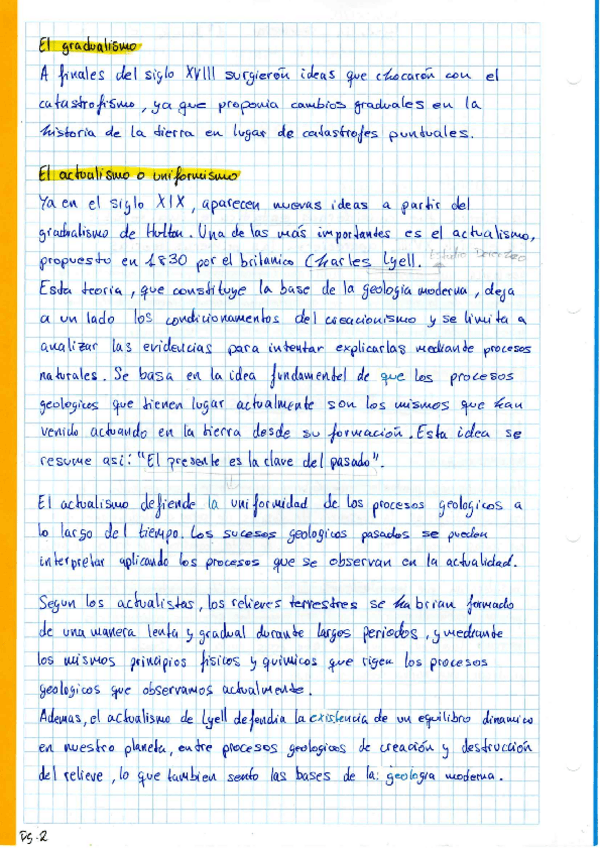 El gradualismo
A finales del siglo XVIII surgierón ideas que chocarón con el
catastrofismo, ya que proponia cambios graduales en la
historia de la tierra en lugar de catastrofes puntuales.
El actualismo o uniformismo
Ya en el siglo XIX, aparecen nuevas ideas a partir del
gradualismo de Hutton. Una de las más importantes es el actualismo,
propuesto en 1830 por el britanico Charles Lyell.
Esta teoria, que constituye la base de la geologia moderna, deja
a un lado los condicionamentos del creacionismo y se limita a
analizar las evidencias para intentar explicarlas mediante procesos
naturales. Se basa en la idea fundamentel de que los procesos
geologicos que tienen lugar actualmente son los mismos que han
venido actuando en la tierra desde su formación. Esta idea se
resume asi: "El presente es la clave del pasado".
El actualismo defiende la uniformidad de los procesos geologicos a
lo largo del tiempo. Los sucesos geologicos pasados se pueden
interpretar aplicando los procesos que se observan en la actualidad.
Segun los actualistas, los relieves terrestres se habrian formado
de una manera lenta y gradual durante largos periodos, y mediante
los mismos principios fisicos y quimicos que rigen los procesos
geologicos que observamos actualmente.
Ademas, el actualismo de Lyell defendia la existencia de un equilibro dinamico
en nuestro planeta, entre procesos geologicos de creación y destrucción
del relieve, lo que tambien sento las bases de la geologia moderna.
Pg-2